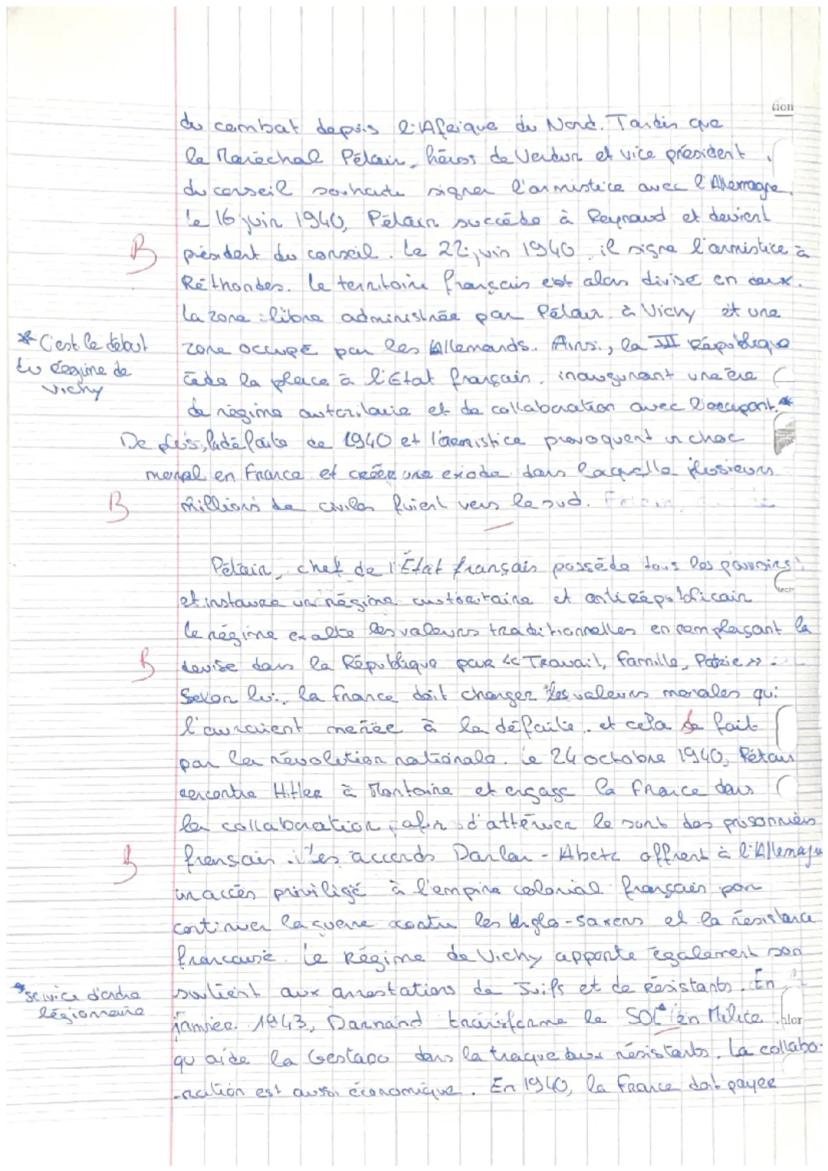 du combat depuis l'Afrique du Nord. Tandis que
le Maréchal Pétain, héros de Verdun et vice président
du conseil souhaite signer l'armistice avec l'Allemagne.
Le 16 juin 1940, Pétain succède à Reynaud et devient
B président du conseil. Le 22 juin 1940, il signe l'armistice à
Réthondes. Le territoire français est alors divisé en deux.
La zone libre administrée par Pétain à Vichy et une
* C'est le début
du régime de
Vichy
zone occupé par les Allemands. Ainsi, la III République
cède la place à l'Etat français, inaugurant une ère
de régime autoritaire et de collaboration avec l'occupant.*
De plus, la défaite de 1940 et l'armistice provoquent un choc
moral en France et créer une exode dans laquelle plusieurs
B millions de civiles fuient vers le sud.
Pétain, chef de l'État français possède tous les pouvoirs
et instaure un régime autoritaire et antirépublicain
le régime exalte les valeurs traditionnelles en remplaçant la
B devise dans la République par << Travail, Famille, Patrie >>.
Selon lui, la France doit changer les valeurs morales qui
l'auraient menée à la défaite et cela se fait
par la révolution nationale. Le 24 octobre 1940, Pétain
rencontre Hitler à Montoire et engage la France dans
la collaboration, afin d'atténuer le sort des prisonniers
B français. Les accords Darlan-Abetz offrent à l'Allemagne
un accès priviligié à l'empire colonial français pour
continuer la guerre contre les Anglo-saxons et la résistance
française. Le Régime de Vichy apporte également son
* Service d'ordre
légionnaire
soutient aux arrestations de Juifs et de résistants. En
janvier 1943, Darnand transforme le SOL* en Milice
qu aide la Gestapo dans la traque aux résistants. La collabo-
-ration est aussi économique. En 1940, la France doit payer